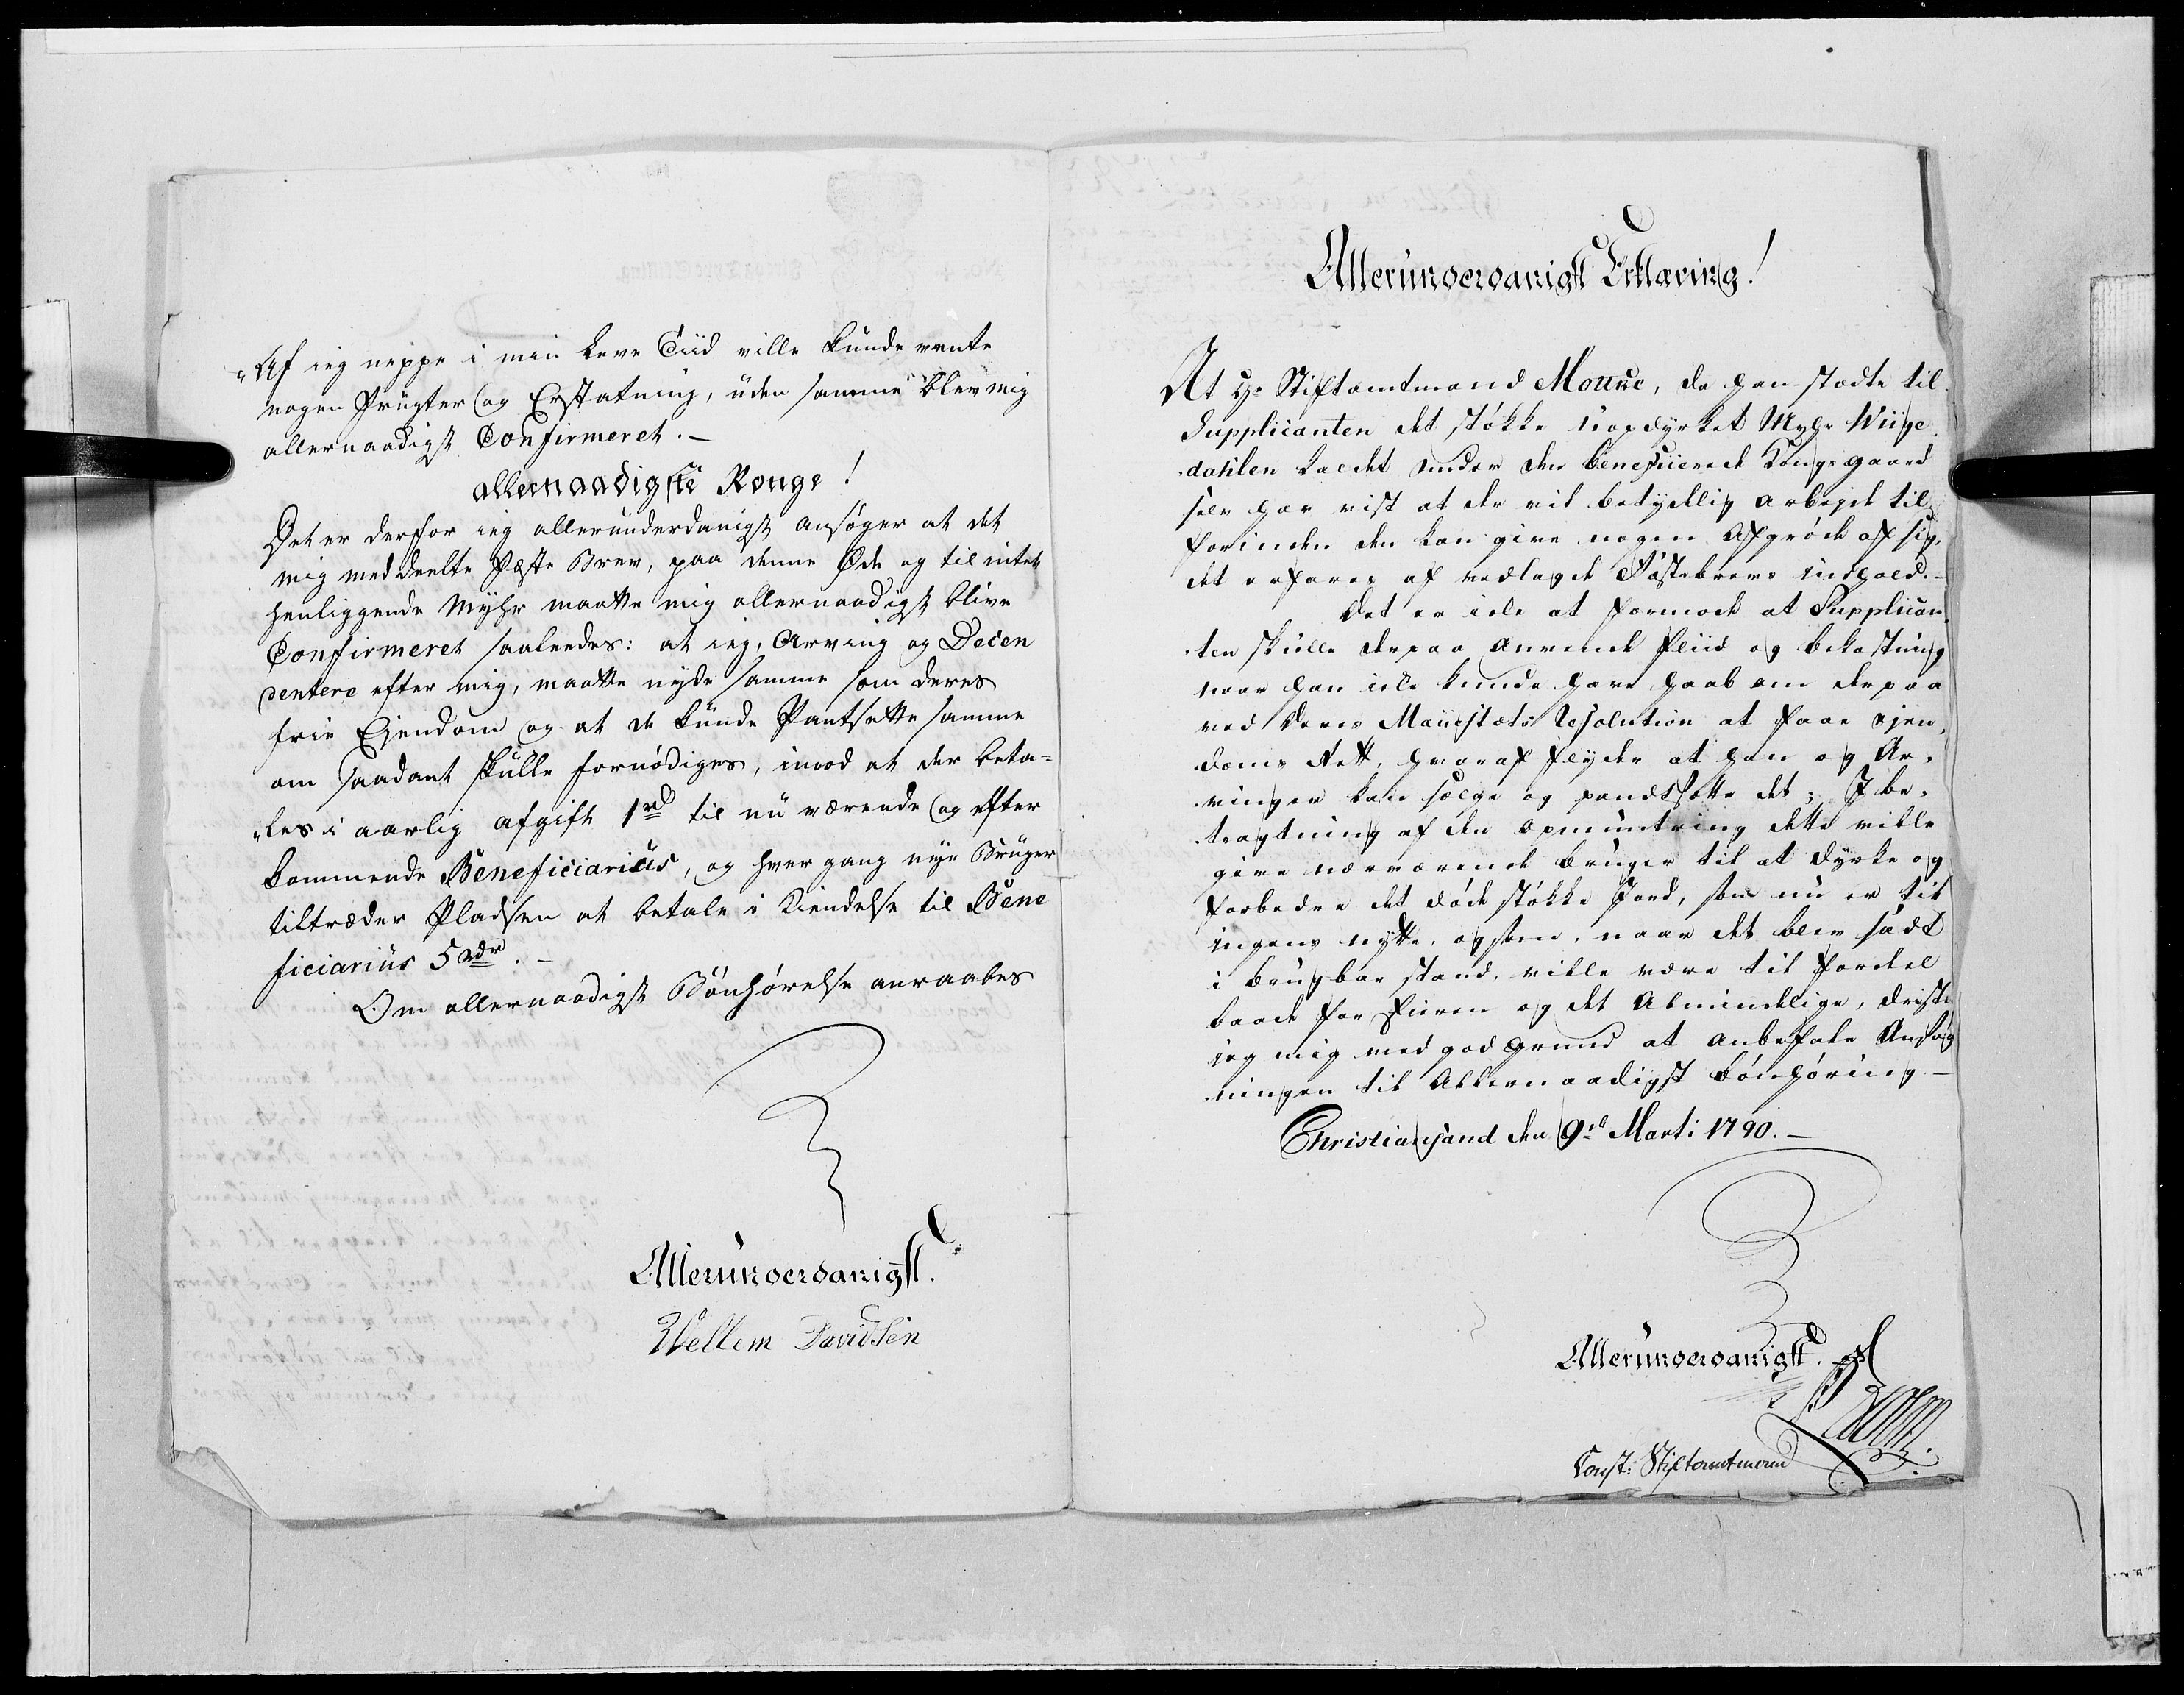 Af ieg neppe i min Leve Tiid ville kunde vente
nogen Frugter og Erstatning, uden samme blev mig
allernaadigst Confirmeret.-
allernaadigste Konge!
Det er derfor ieg allerunderdanigst ansøger at det
mig meddeelte Fæste Brev, paa denne Øde og til intet
henliggende Myhr maatte mig allernaadigst blive
Confirmeret saaleedes: at ieg, Arving og Decen
dentere efter mig, maatte nyde samme som deres
frie Ejendom og at de kunde Pantsette samme
om saadant skulle fornødiges, imod at der beta=
"les i aarlig afgift 1rd til nu værende og efter
kommende Beneficiarius, og hver gang nye Bruger
tiltræder Pladsen at betale i Kiendelse til Bene
ficiarius 5 rdr.-
Om allernaadigst Bønhørelse anraabes
Allerunderdanigst.
Wellem Davidsen
Allerunderdanigst Erklæring!
At Hr Stiftamtmand Moltke, da han stædte til
Supplicanten det støkke uopdyrket Myhr Wiige
dahlen kaldet under den beneficerede Kongsgaard
selv har vist at der vil betydelig arbejde til
forinden den kan give nogen Afgrøde af sig,
det erfares af vedlagde Fæstebrevs indhold.-
Det er ikke at formode at Supplican
ten skulle derpaa anvende fliid og bekostning
naar han ikke kunde have haab om derpaa
ved Deres Majestæts Resolution at faae ejen,
doms Rett, hvoraf flyder at han og Ar,
vinger kan sælge og pandtsætte det; I be,
tragtning af den opmuntring dette ville
give nærværende bruger til at dyrke og
forbedre det døde støkke Jord, som nu er til
ingens nytte, og som, naar det blev sadt
i brugbar stand, ville være til fordel
baade for Eieren og det Almindelige, drister
jeg mig med god Grund at anbefale Ansøg
ningen til Allernaadigst bønhøring.-
Christiansand den 9de Marti 1790.-
Allerunderdanigst.
Const: Stiftamtmand